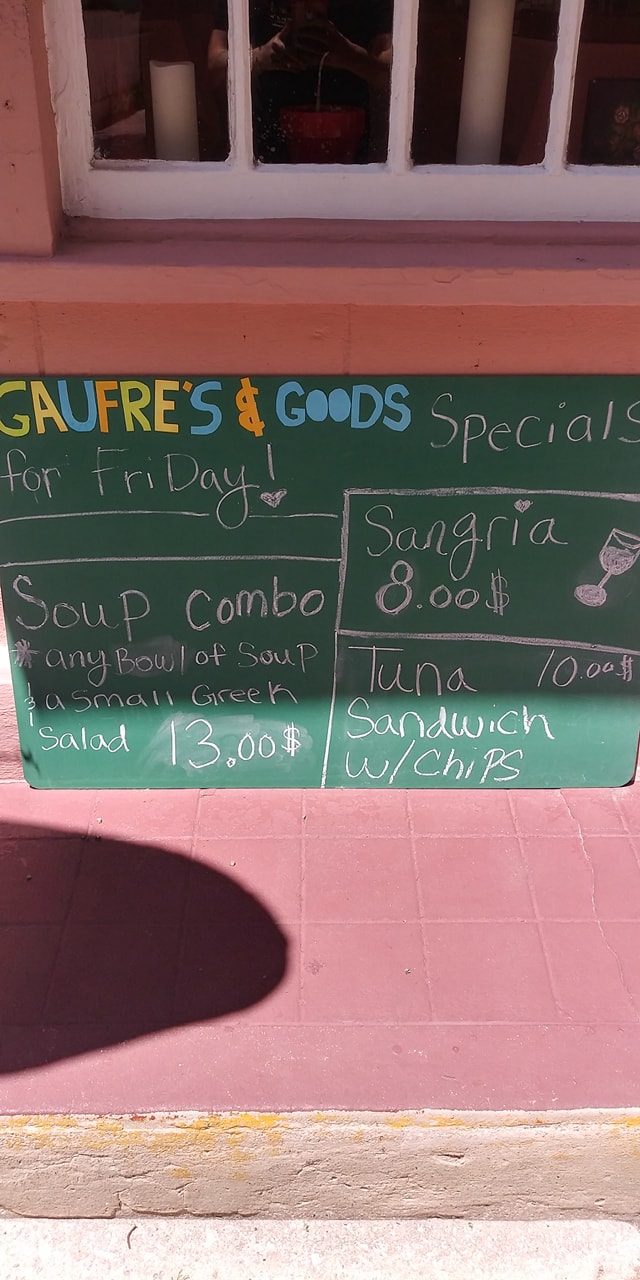 GAUFRE'S & GOODS Specials
for FriDay!
Soup Combo
* any Bowl of Soup
& a small Greek
Salad 13.00$
Sangria
8.00$
Tuna 10.00$
Sandwich
w/ChiPS